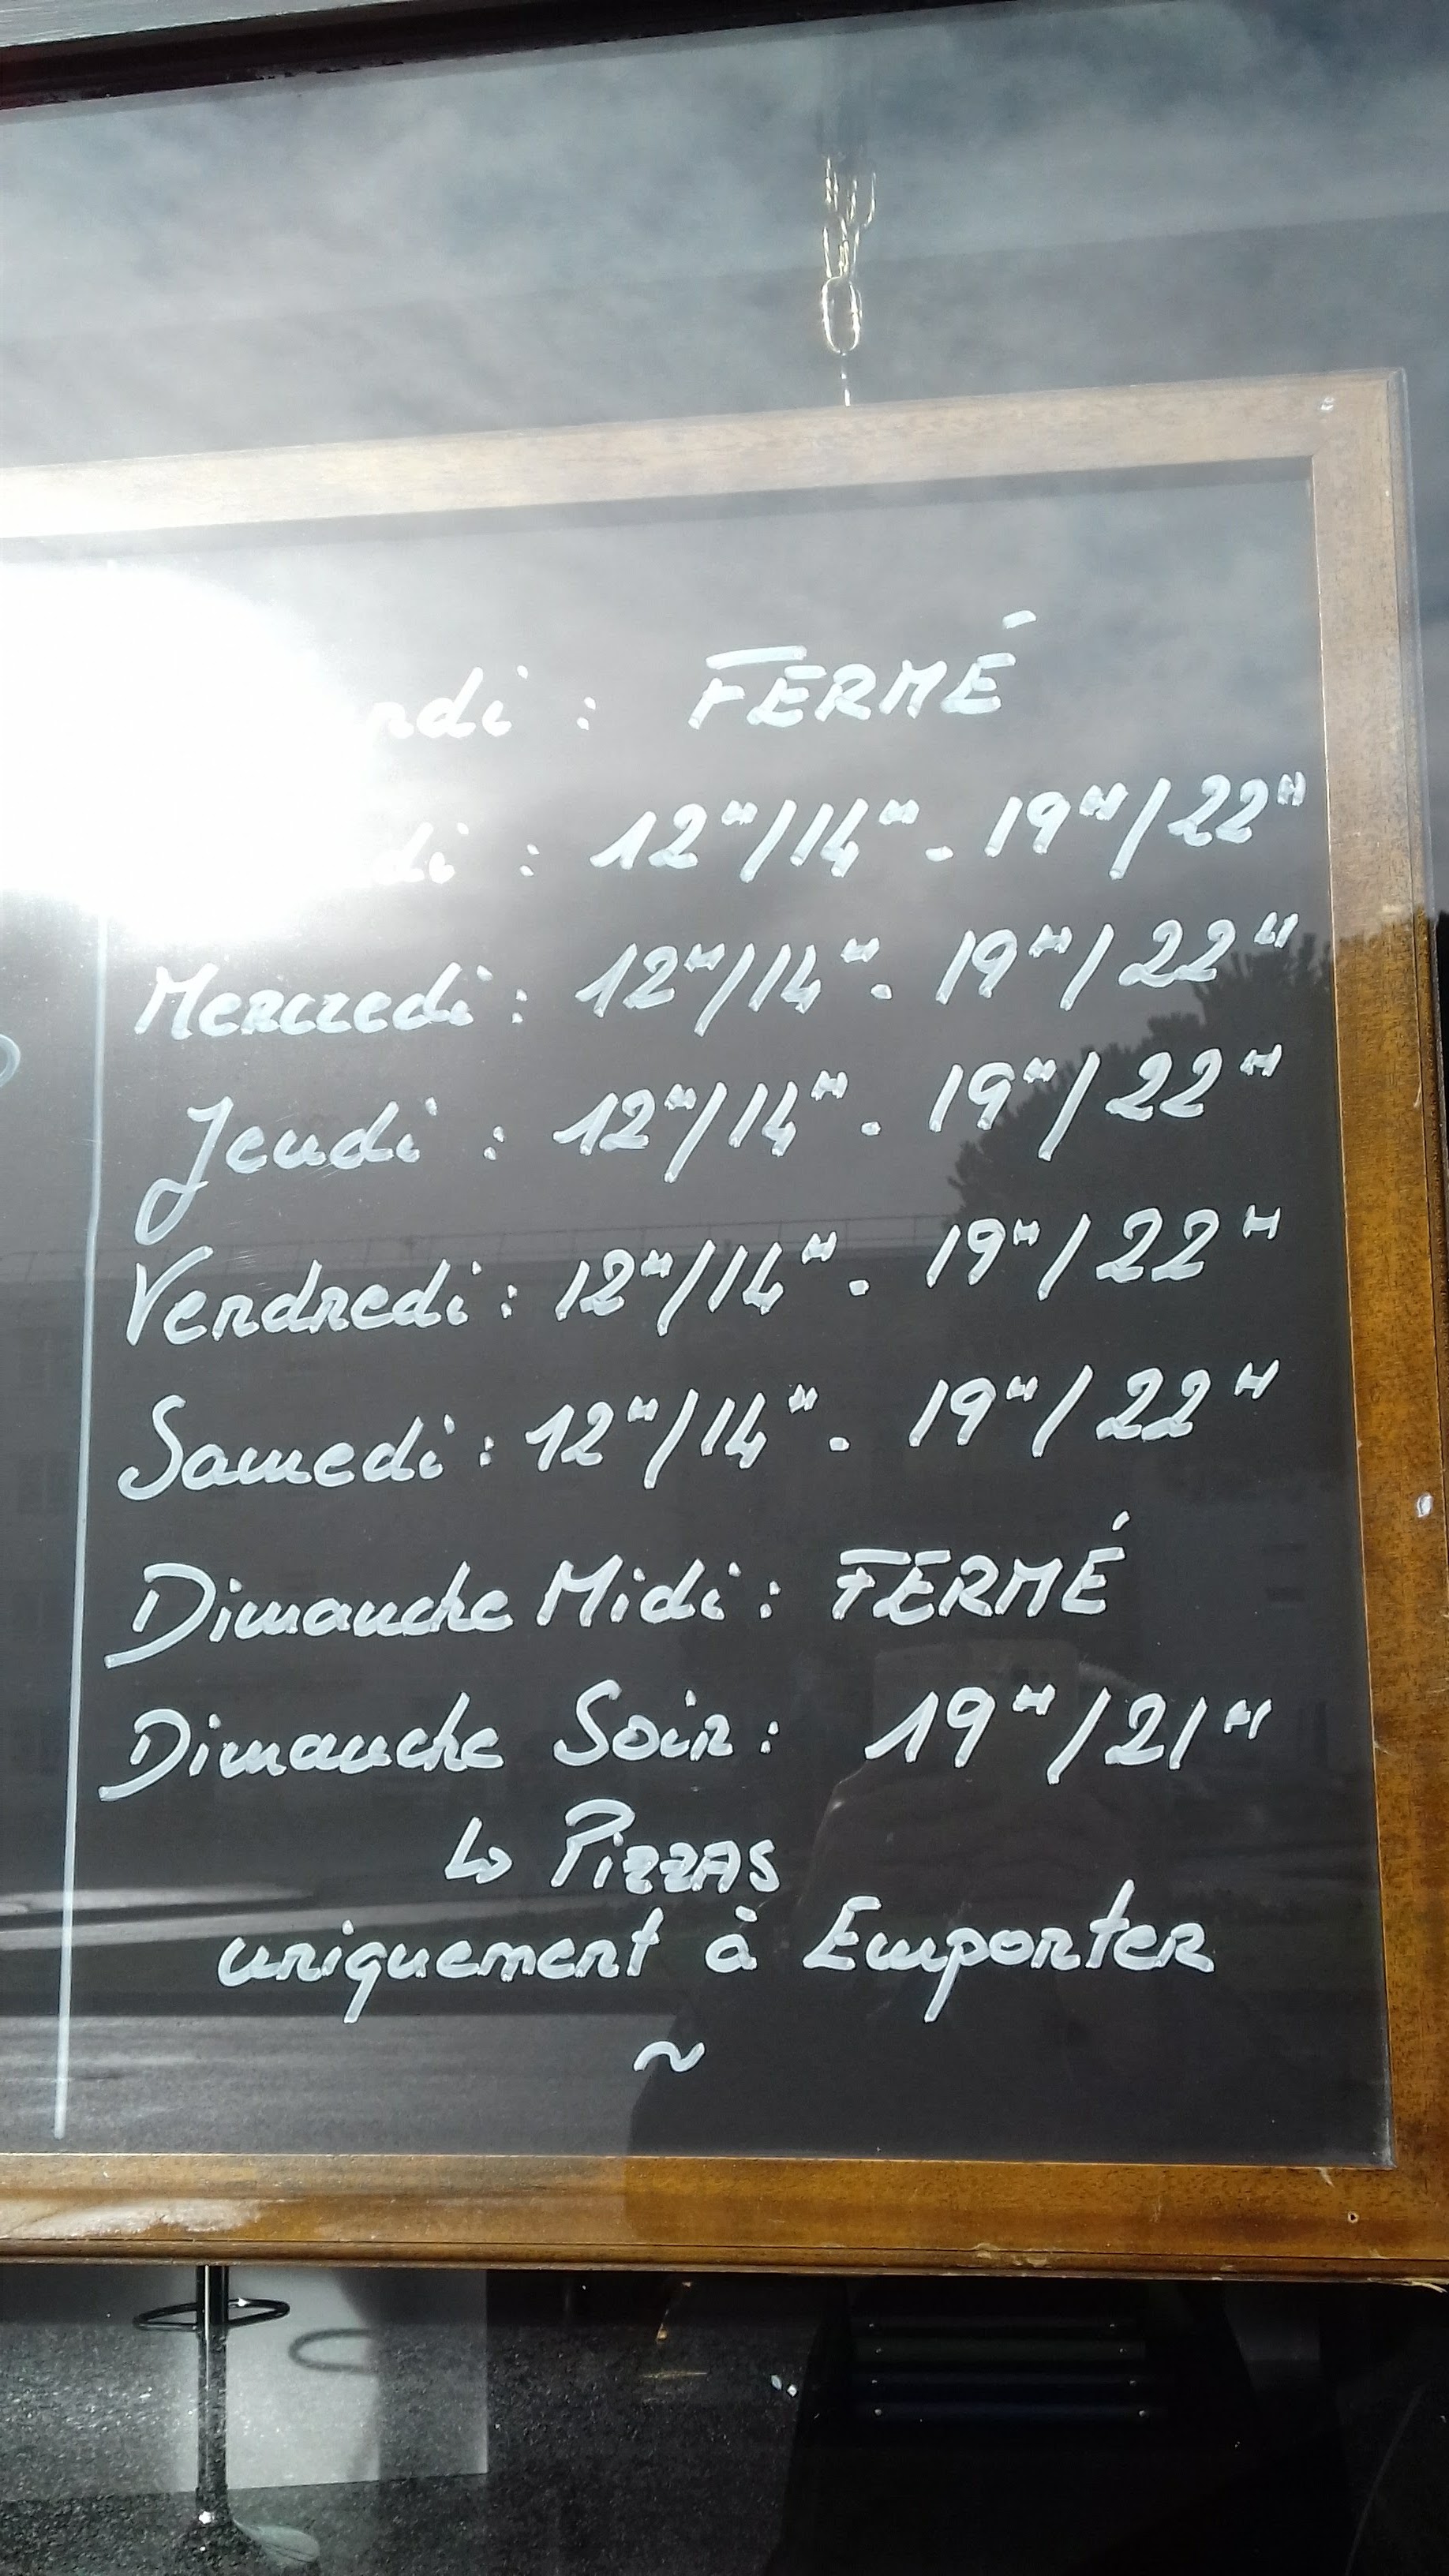 : FERMÉ
: 12H/14H. 19H/22H
Mercredi: 12H/14H. 19H/22H
Jeudi : 12H/14H. 19H/22H
Vendredi: 12H/14H. 19H/22H
Samedi: 12H/14H. 19H/22H
Dimanche Midi: FERMÉ
Dimanche Soir: 19H/21H
↳ PIZZAS
uniquement à Emporter
~